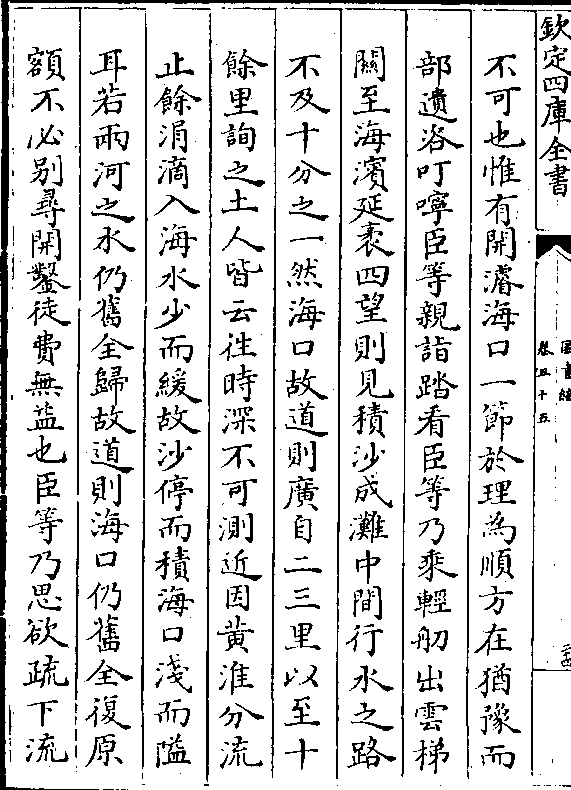 欽定四庫全書
圖書編
卷五十三
不可也惟有開濬海口一節於理為順方在猶豫而
部遺咨叮嚀臣等親詣踏看臣等乃乘輕舠出雲梯
關至海濱延袤四望則見積沙成灘中間行水之路
不及十分之一然海口故道則廣自二三里以至十
餘里詢之土人皆云徃時深不可測近因黄淮分流
止餘涓滴入海水少而緩故沙停而積海口淺而隘
耳若兩河之水仍舊全歸故道則海口仍舊全復原
額不必别尋開鑿徒費無益也臣等乃思欲疏下流